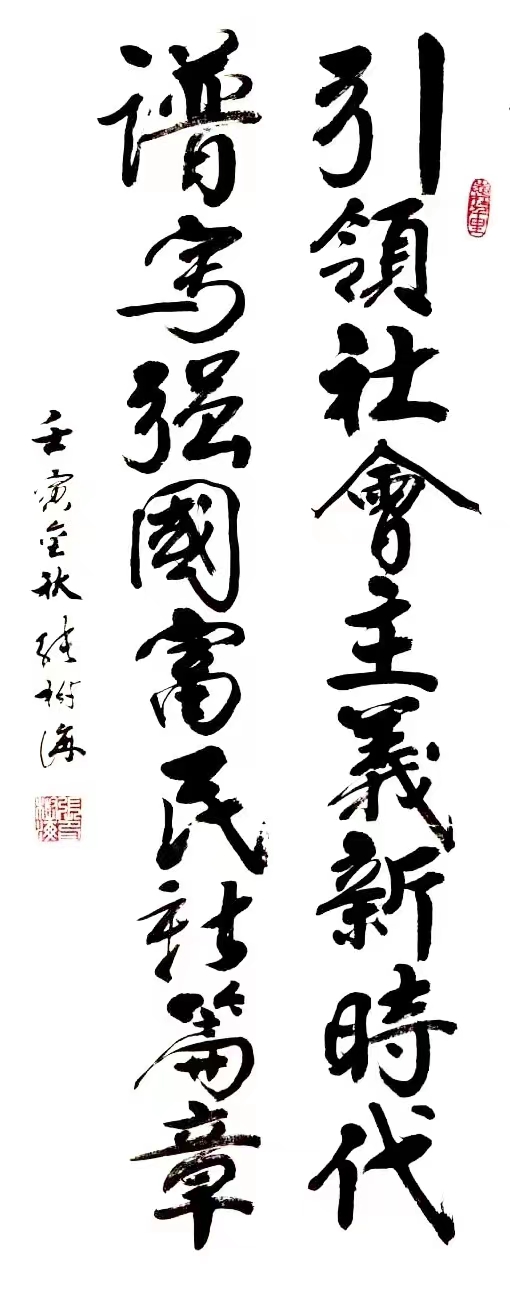 引領社會主義新時代
谱写强國富民新篇章
壬寅金秋 张树海